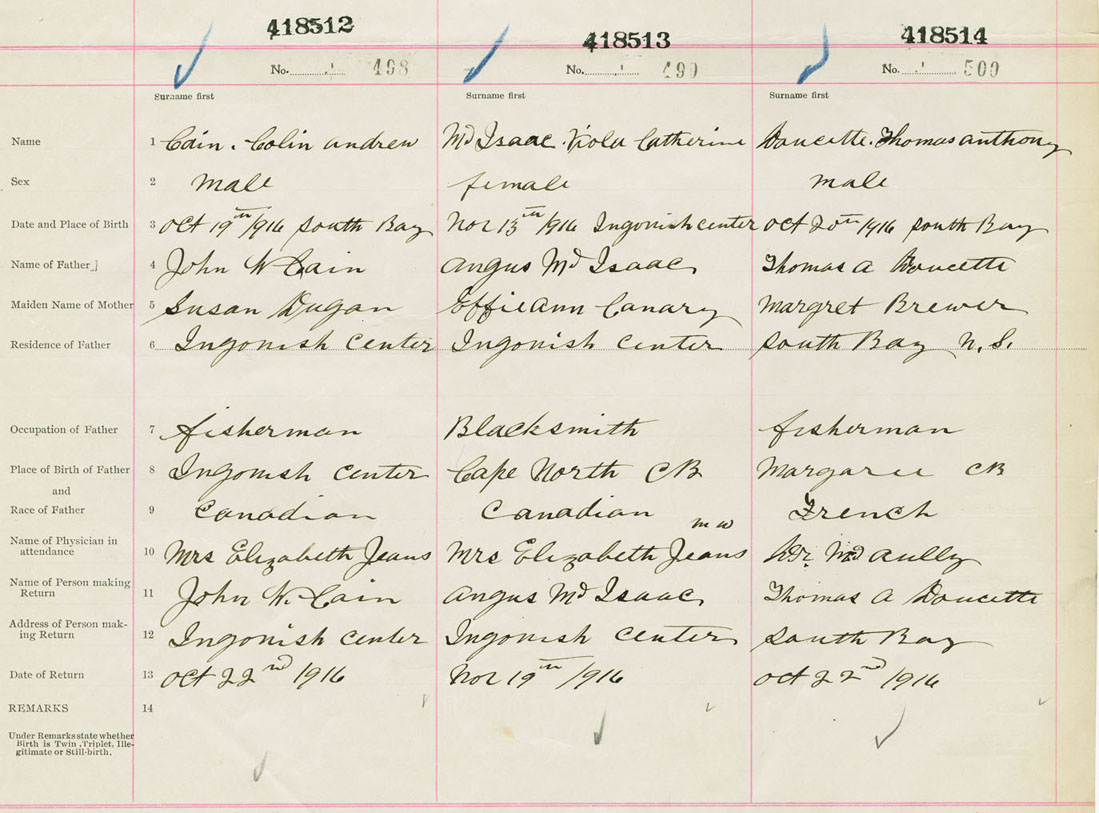 418512 418513 418514
No. 498 No. 499 No. 500
Surname first Surname first Surname first
Name 1 Cain. Colin andrew Mc Isaac. Viola Catherine Doucette. Thomas anthony
Sex 2 male female male
Date and Place of Birth 3 Oct 19th/916 South Bay Nov 13th/916 Ingonish center Oct 20th 1916 South Bay
Name of Father 4 John W Cain Angus Mc Isaac Thomas A Doucette
Maiden Name of Mother 5 Susan Dugan Effie Ann Canary Margret Brewer
Residence of Father 6 Ingonish Center Ingonish Center South Bay N.S.
Occupation of Father 7 fisherman Blacksmith fisherman
Place of Birth of Father 8 Ingonish Center Cape North CB Margaree CB
and
Race of Father 9 Canadian Canadian French
m w
Name of Physician in
attendance 10 Mrs Elizabeth Jeans Mrs Elizabeth Jeans Dr. McAully
Name of Person making
Return 11 John W. Cain Angus Mc Isaac Thomas A Doucette
Address of Person mak-
ing Return 12 Ingonish Center Ingonish Center South Bay
Date of Return 13 Oct 22nd 1916 Nov 19th /916 Oct 22nd 1916
REMARKS 14
Under Remarks state whether
Birth is Twin, Triplet, Ille-
gitimate or Still-birth.